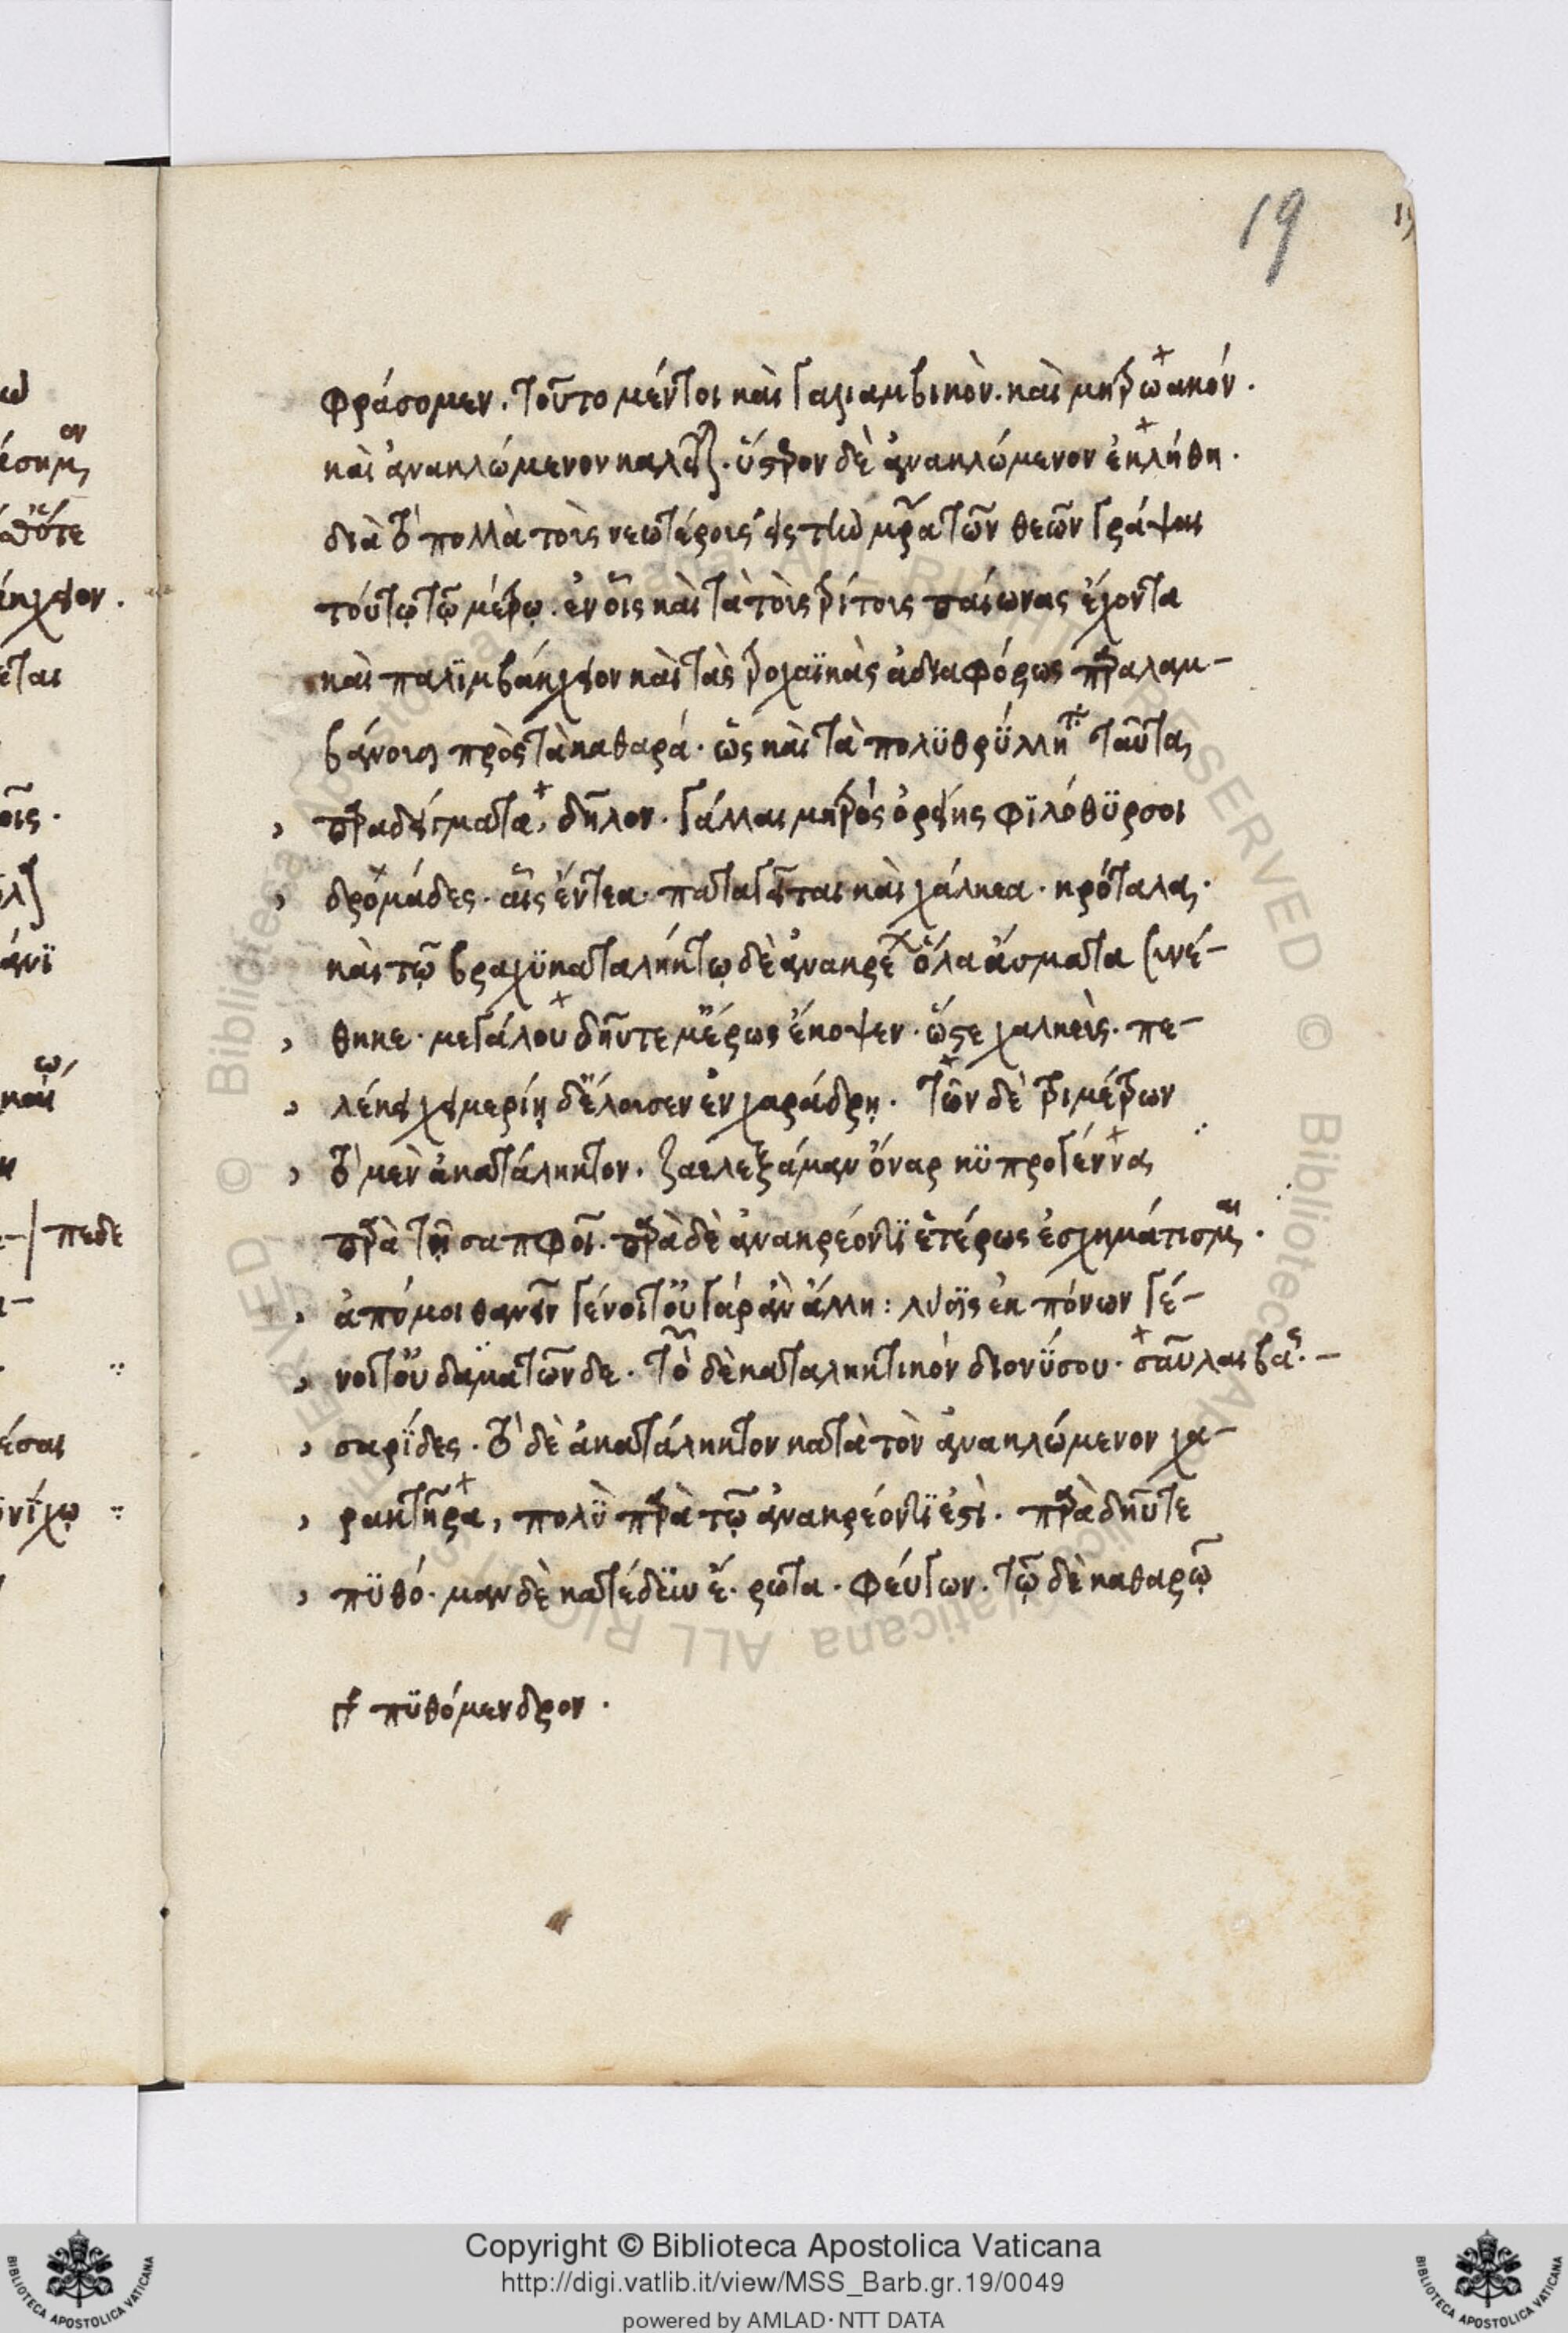 19
φράσομεν. τοῦτο μέντοι καὶ γαλιαμβικὸν. καὶ μητρωακόν.
καὶ ἀνακλώμενον καλεῖται. ὕστερον δὲ ἀνακλώμενον ἐκλήθη.
διὰ τὸ πολλὰ τοὶς νεωτέροις εἰς τὴν μητέρα τῶν θεῶν γράψαι
τούτῳ τῷ μέτρῳ. ἐν οἷς καὶ τὰ τοὶς τρίτοις παίωνας ἔχοντα
καὶ παλϊμβάκχειον καὶ τὰς τροχαϊκὰς ἀδιαφόρως παραλαμ-
βάνουσι πρὸς τὰ καθαρά. ὡς καὶ τὰ πολϋθρϋλλητα ταῦτα
παραδείγματα, δῆλον. γάλλαι μητρὸς ὀρείης φϊλόθϋρσοι
δρομάδες. αἷς ἔντεα. παταγεῖται καὶ χάλκεα. κρόταλα.
καὶ τῷ βραχϋκαταλήκτῳ δὲ ἀνακρε ὅλα ἄσματα συνέ-
θηκε. μεγάλου δηῦτε μ' ἔρως ἔκοψεν. ὥστε χαλκεὶς. πε-
λέκει χειμερίῃ δ' ἔλουσεν ἐν χαράδρῃ. τῶν δὲ τριμέτρων
τὸ μὲν ἀκατάληκτον. ζαελεξάμαν ὄναρ κϋπρογέννα
παρὰ τῇ σαπφοῖ. παρὰ δὲ ἀνακρέοντϊ ἑτέρως ἐσχημάτισμαι.
ἀπό μοι θανεῖν γένοιτ' οὐ γάρ ἀν ἄλλη: λύσϊς ἐκ πόνων γέ-
νοιτ' οὐδαμα τῶνδε. τὸ δὲ καταληκτικὸν διονϋσου. σαῦλαι βα.-
σαρϊδες. τὸ δὲ ἀκατάληκτον κατὰ τὸν ἀνακλώμενον χα-
ρακτῆρα, πολϋ παρὰ τῷ ἀνακρέοντϊ ἐστὶ. παρὰ δηῦτε
πϋθό. μαν δὲ κατέδϋν ἔ. ρωτα. φεύγων. τῷ δὲ καθαρῷ
πϋθόμενδρον.
Copyright © Biblioteca Apostolica Vaticana
http://digi.vatlib.it/view/MSS_Barb.gr.19/0049
powered by AMLAD · NTT DATA